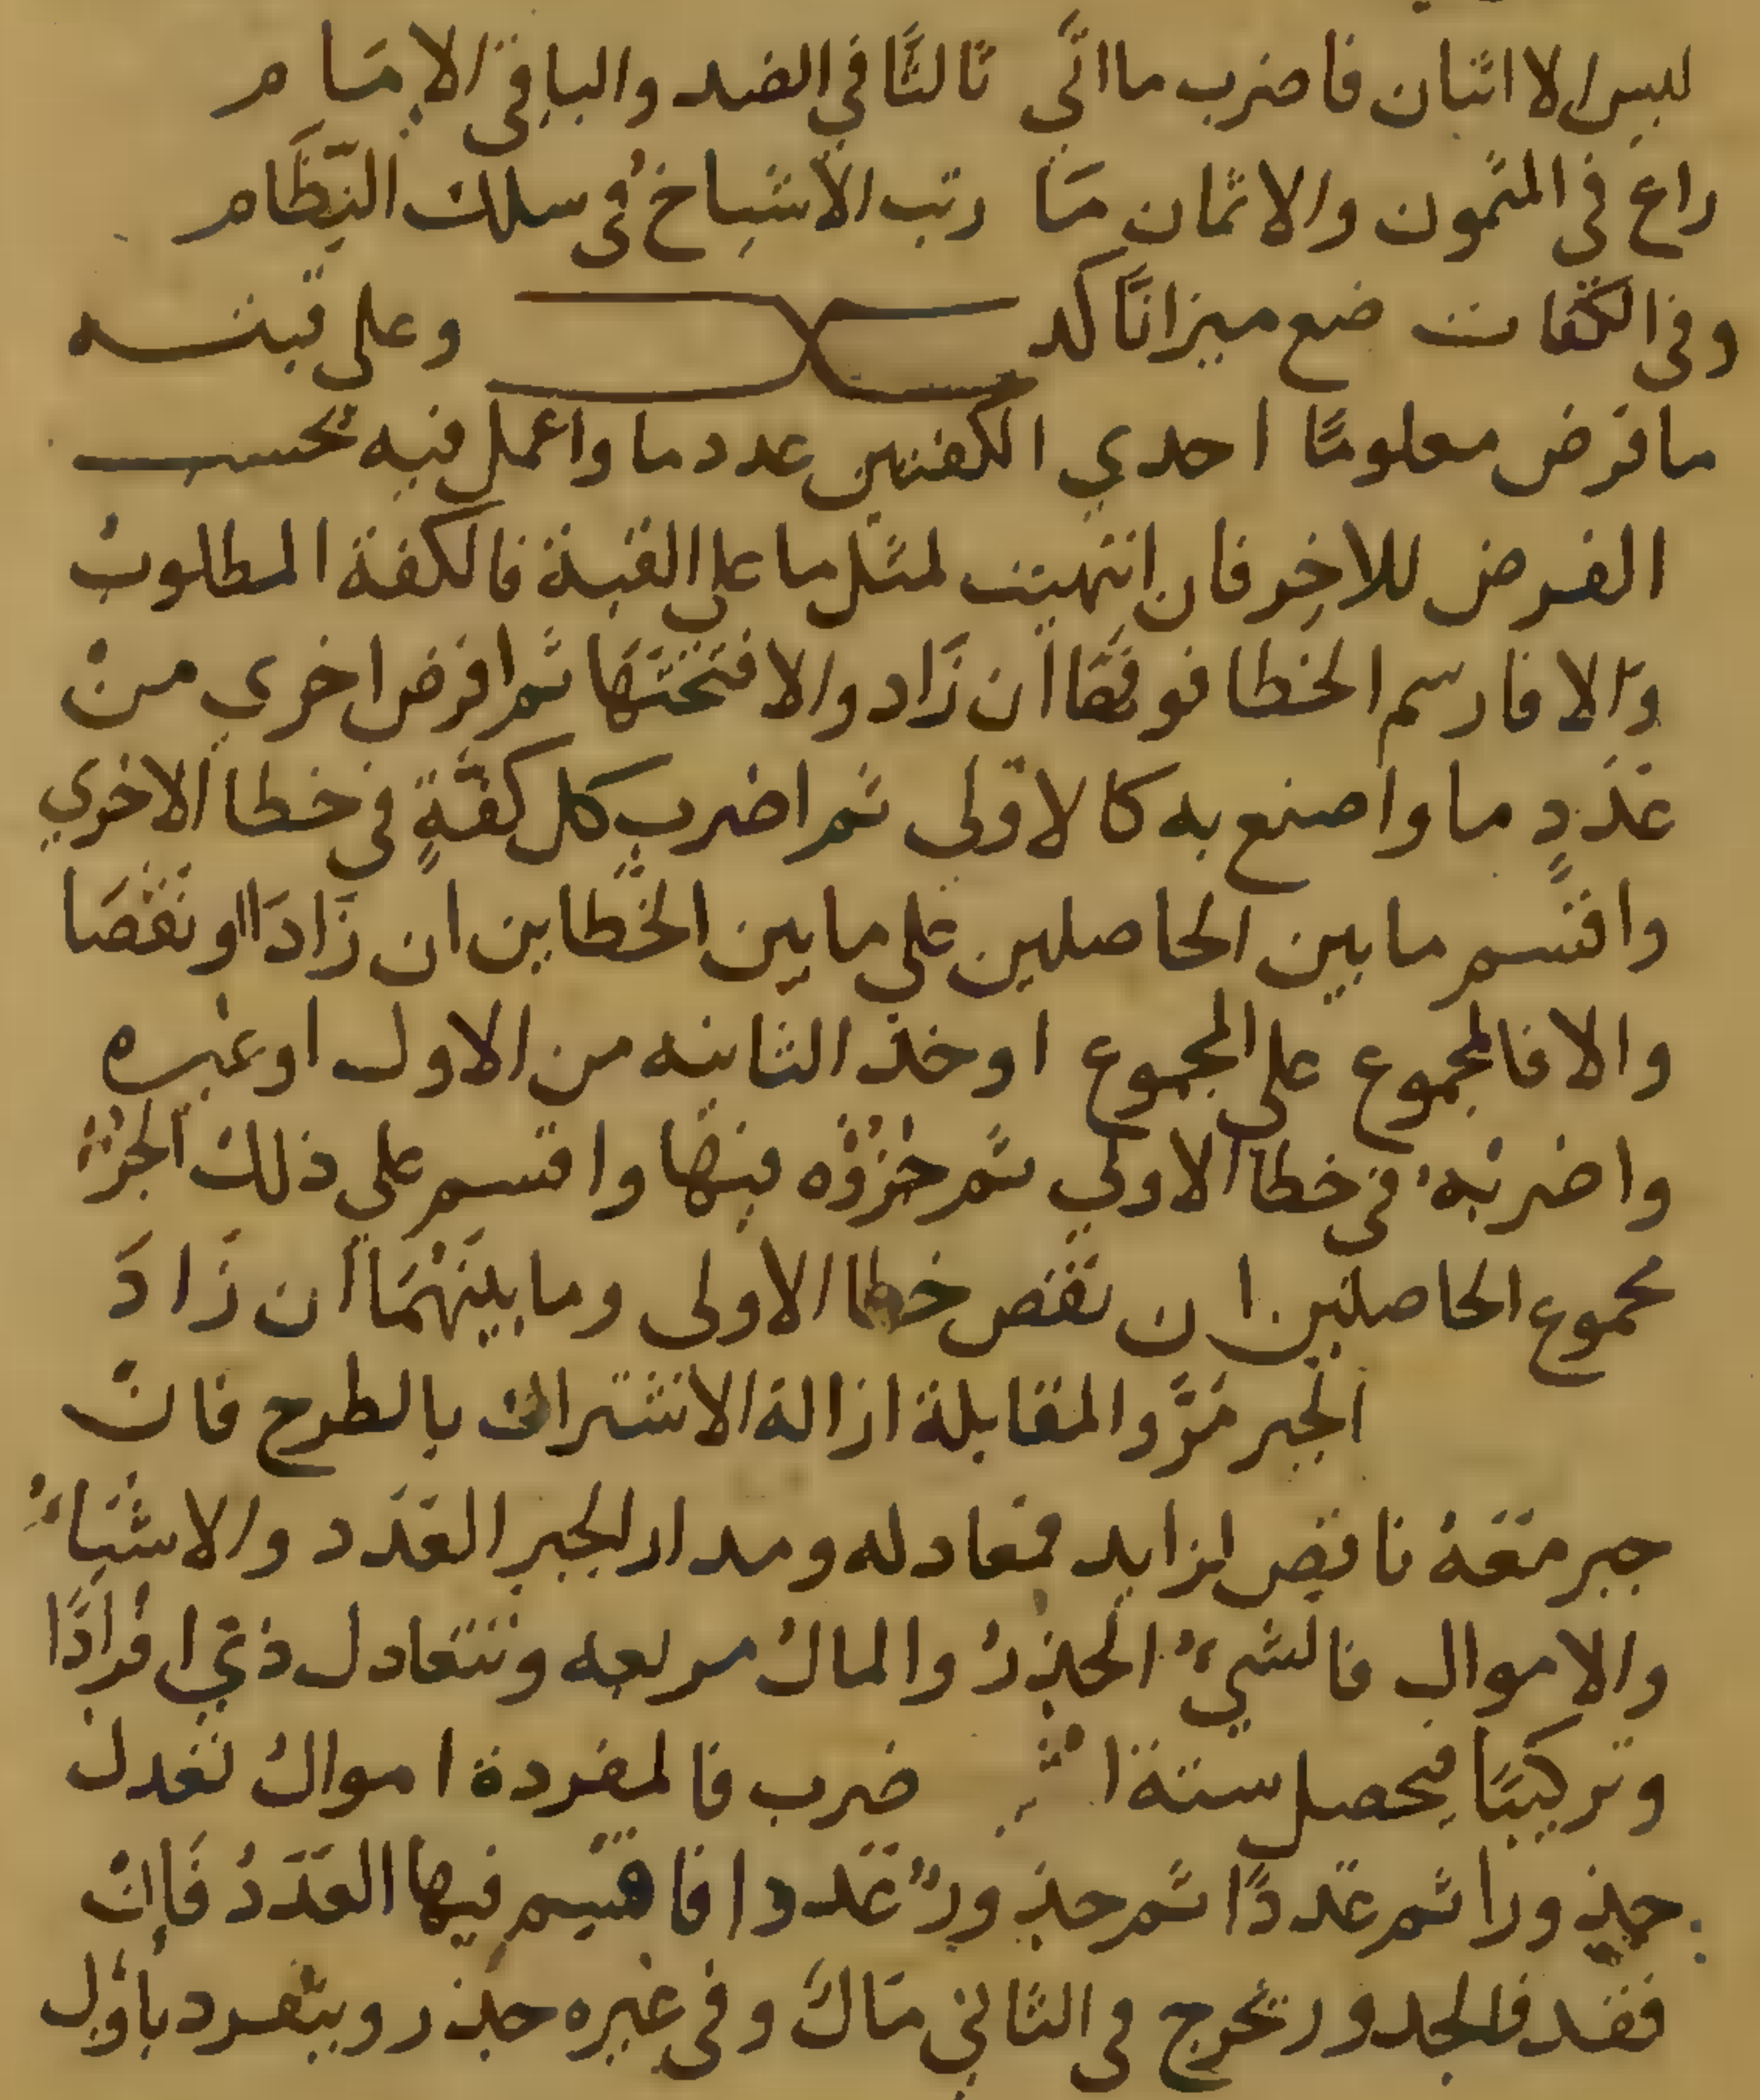 ليس الا اثنان فاضرب ما اتى ثالثًا في الضد والباقي الامَام
راع في المثمون والاثمان مَا رتب الاشياخ في سلك النِّظَام
وفي الكفات ضع ميزانًا كد وعلى قبته
ما فرض معلومًا احدي الكفتين عدد ما واعمل فيه بحسب
الفرض للاخر فان انتهيت لمثل ما على القبة فالكفة المطلوب
والا فارسم الخطا فوقها ان زَاد والا فتحتَها ثم افرض اخري منْ
عَدَدٍ ما واصنع به كالاولى ثم اضرب كل كفةٍ في خطا الاخري
واقسم ما بين الحاصلين علي ما بين الخطاين ان زَادَا او نقصَا
والا فالمجموع على المجموع او خذ الثانيه من الاول او غيره
واضربْهُ في خطا الاولي ثم جُزْؤُه فيها واقسم علي ذلك الجزْء
مجموع الحاصلين ان نقص خطا الاولى وما بينهُمَا ان زَادَ
الجبر مَرَّ والمقابلة ازالة الاشتراك بالطرح فانْ
جبر معَهُ ناقص لزايد فمعادله ومدار الجبر العَدَد والاشيَاءُ
والاموال فالشيءُ الجذرُ والمالُ مربعه وتتعادل ذي افرادًا
وتركيبًا فيحصل ستة ا ضرب فالمفردة اموالُ تعدل
جذورا ثم عَددًا ثم جذورٌ عَددا فاقسِم فيها العَدَدُ فَإنْ
فقد فالجدور تخرج في الثاني مَالٌ وفي غيره جذر وينفرد بأوّل